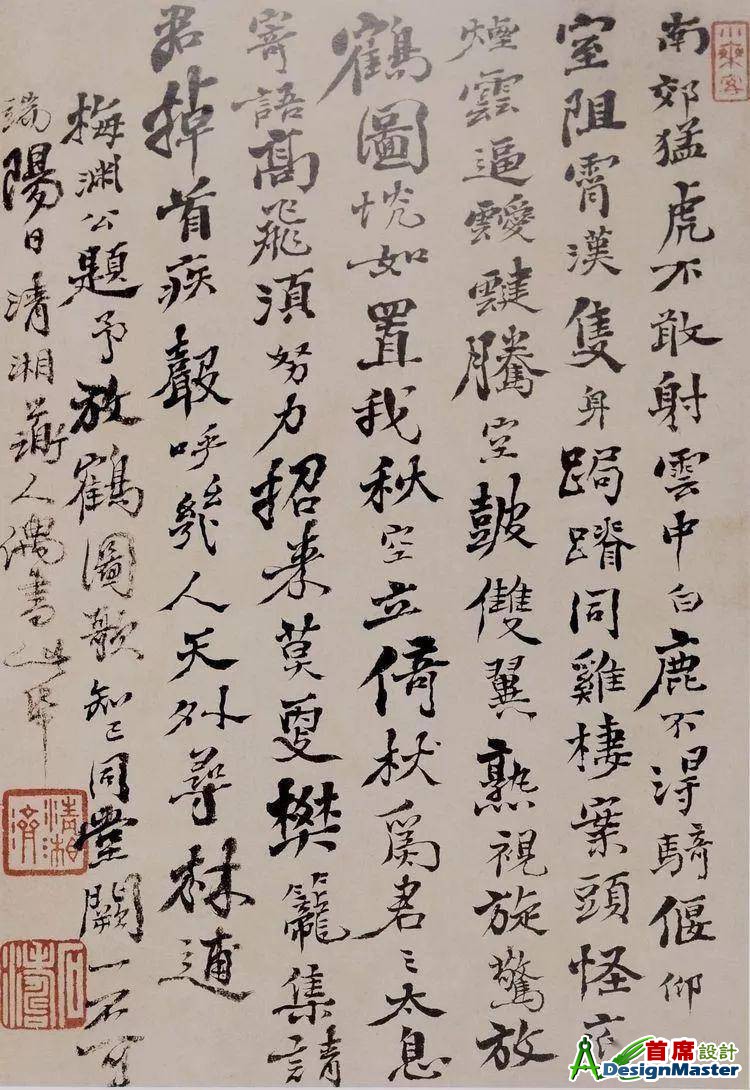 小乘客
南郊猛虎不敢射雲中白鹿不得騎偃仰
室阻霄漢隻身跼蹐同雞棲案頭怪底
煙雲逼靉靆騰空鼓雙翼熟視旋驚放
鶴圖恍如置我秋空立倚杖爲君〻太息
寄語高飛須努力招来莫更樊籠集請
君掉首疾聲呼幾人天外尋林逋
梅渊公題予放鶴圖歌知己同堂闕一不可
端陽日清湘衜人偶書
清湘
石濤
首席設計
DesignMaster